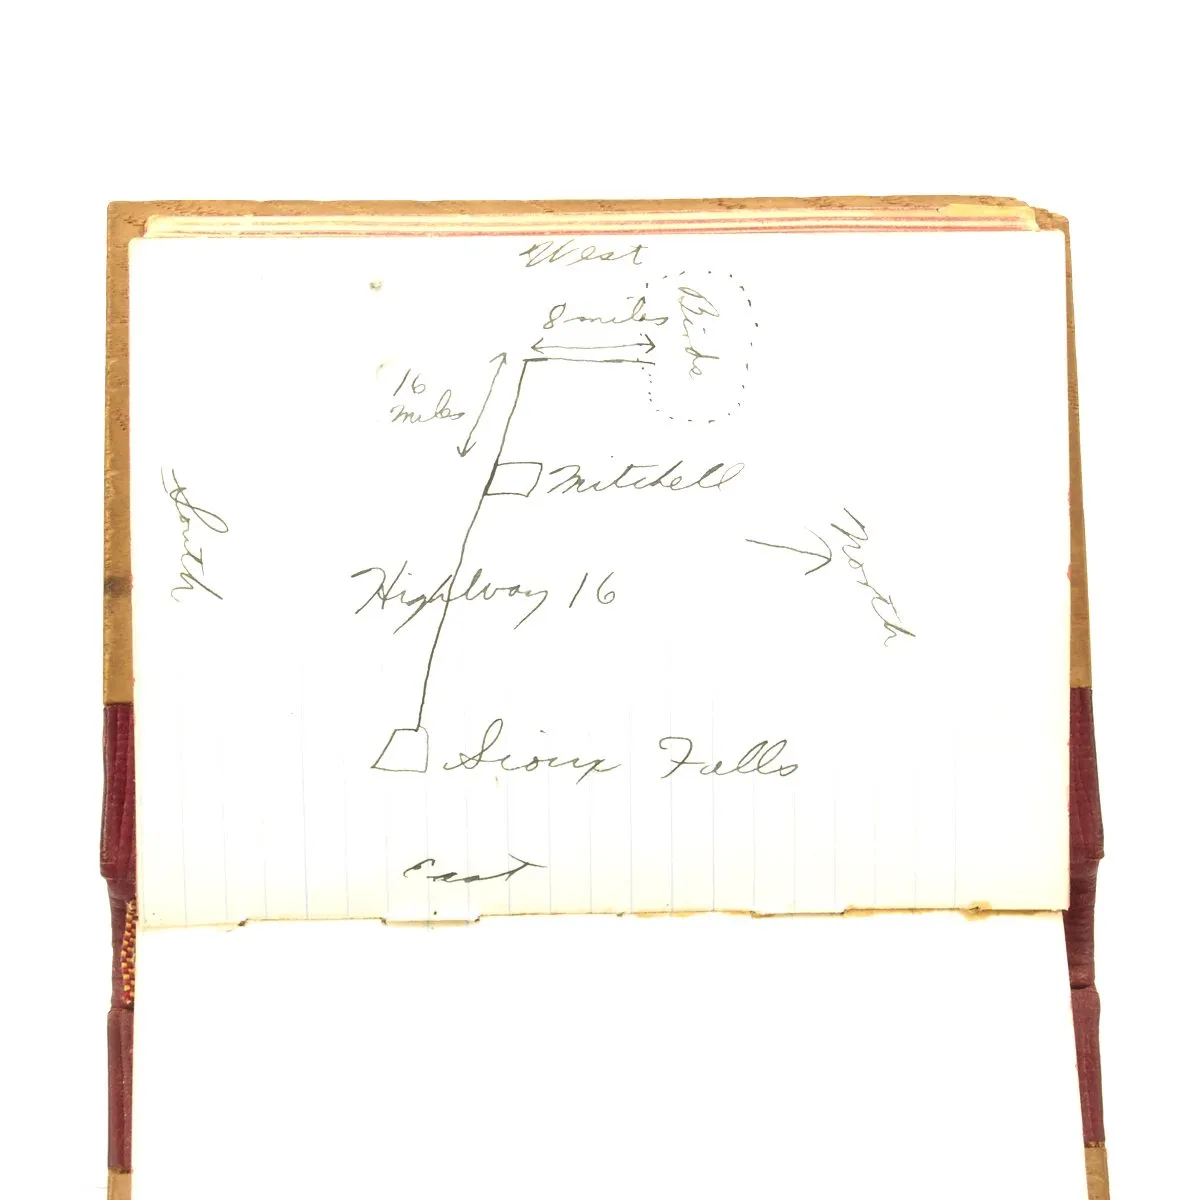 West
8 miles
Birds
16
miles
Mitchell
South
North
Highway 16
Sioux Falls
East